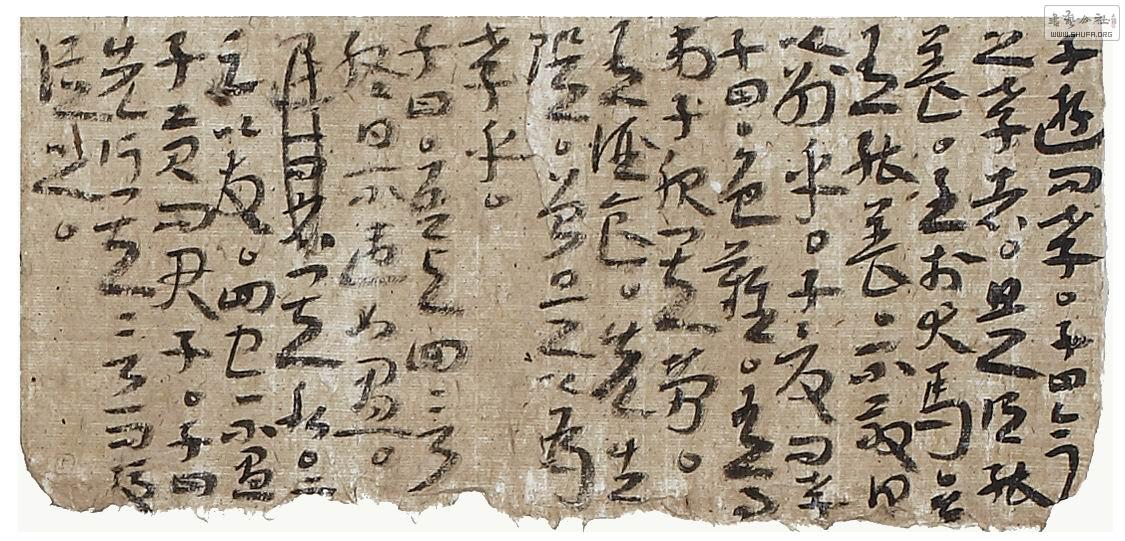 子遊問孝。子曰今
之孝者。是謂能
養。至於犬馬皆
有能養。不敬何
以別乎。子夏問孝
子曰。色難。有事
弟子服其勞。
有酒食。先生
饌。曾是以為
孝乎。
子曰。吾與回言
終日不違如愚。
退而省其私。亦
足以發。回也不愚
子貢問君子。子曰
先行其言而後
從之。
書藝公社
WWW.SHUFA.ORG